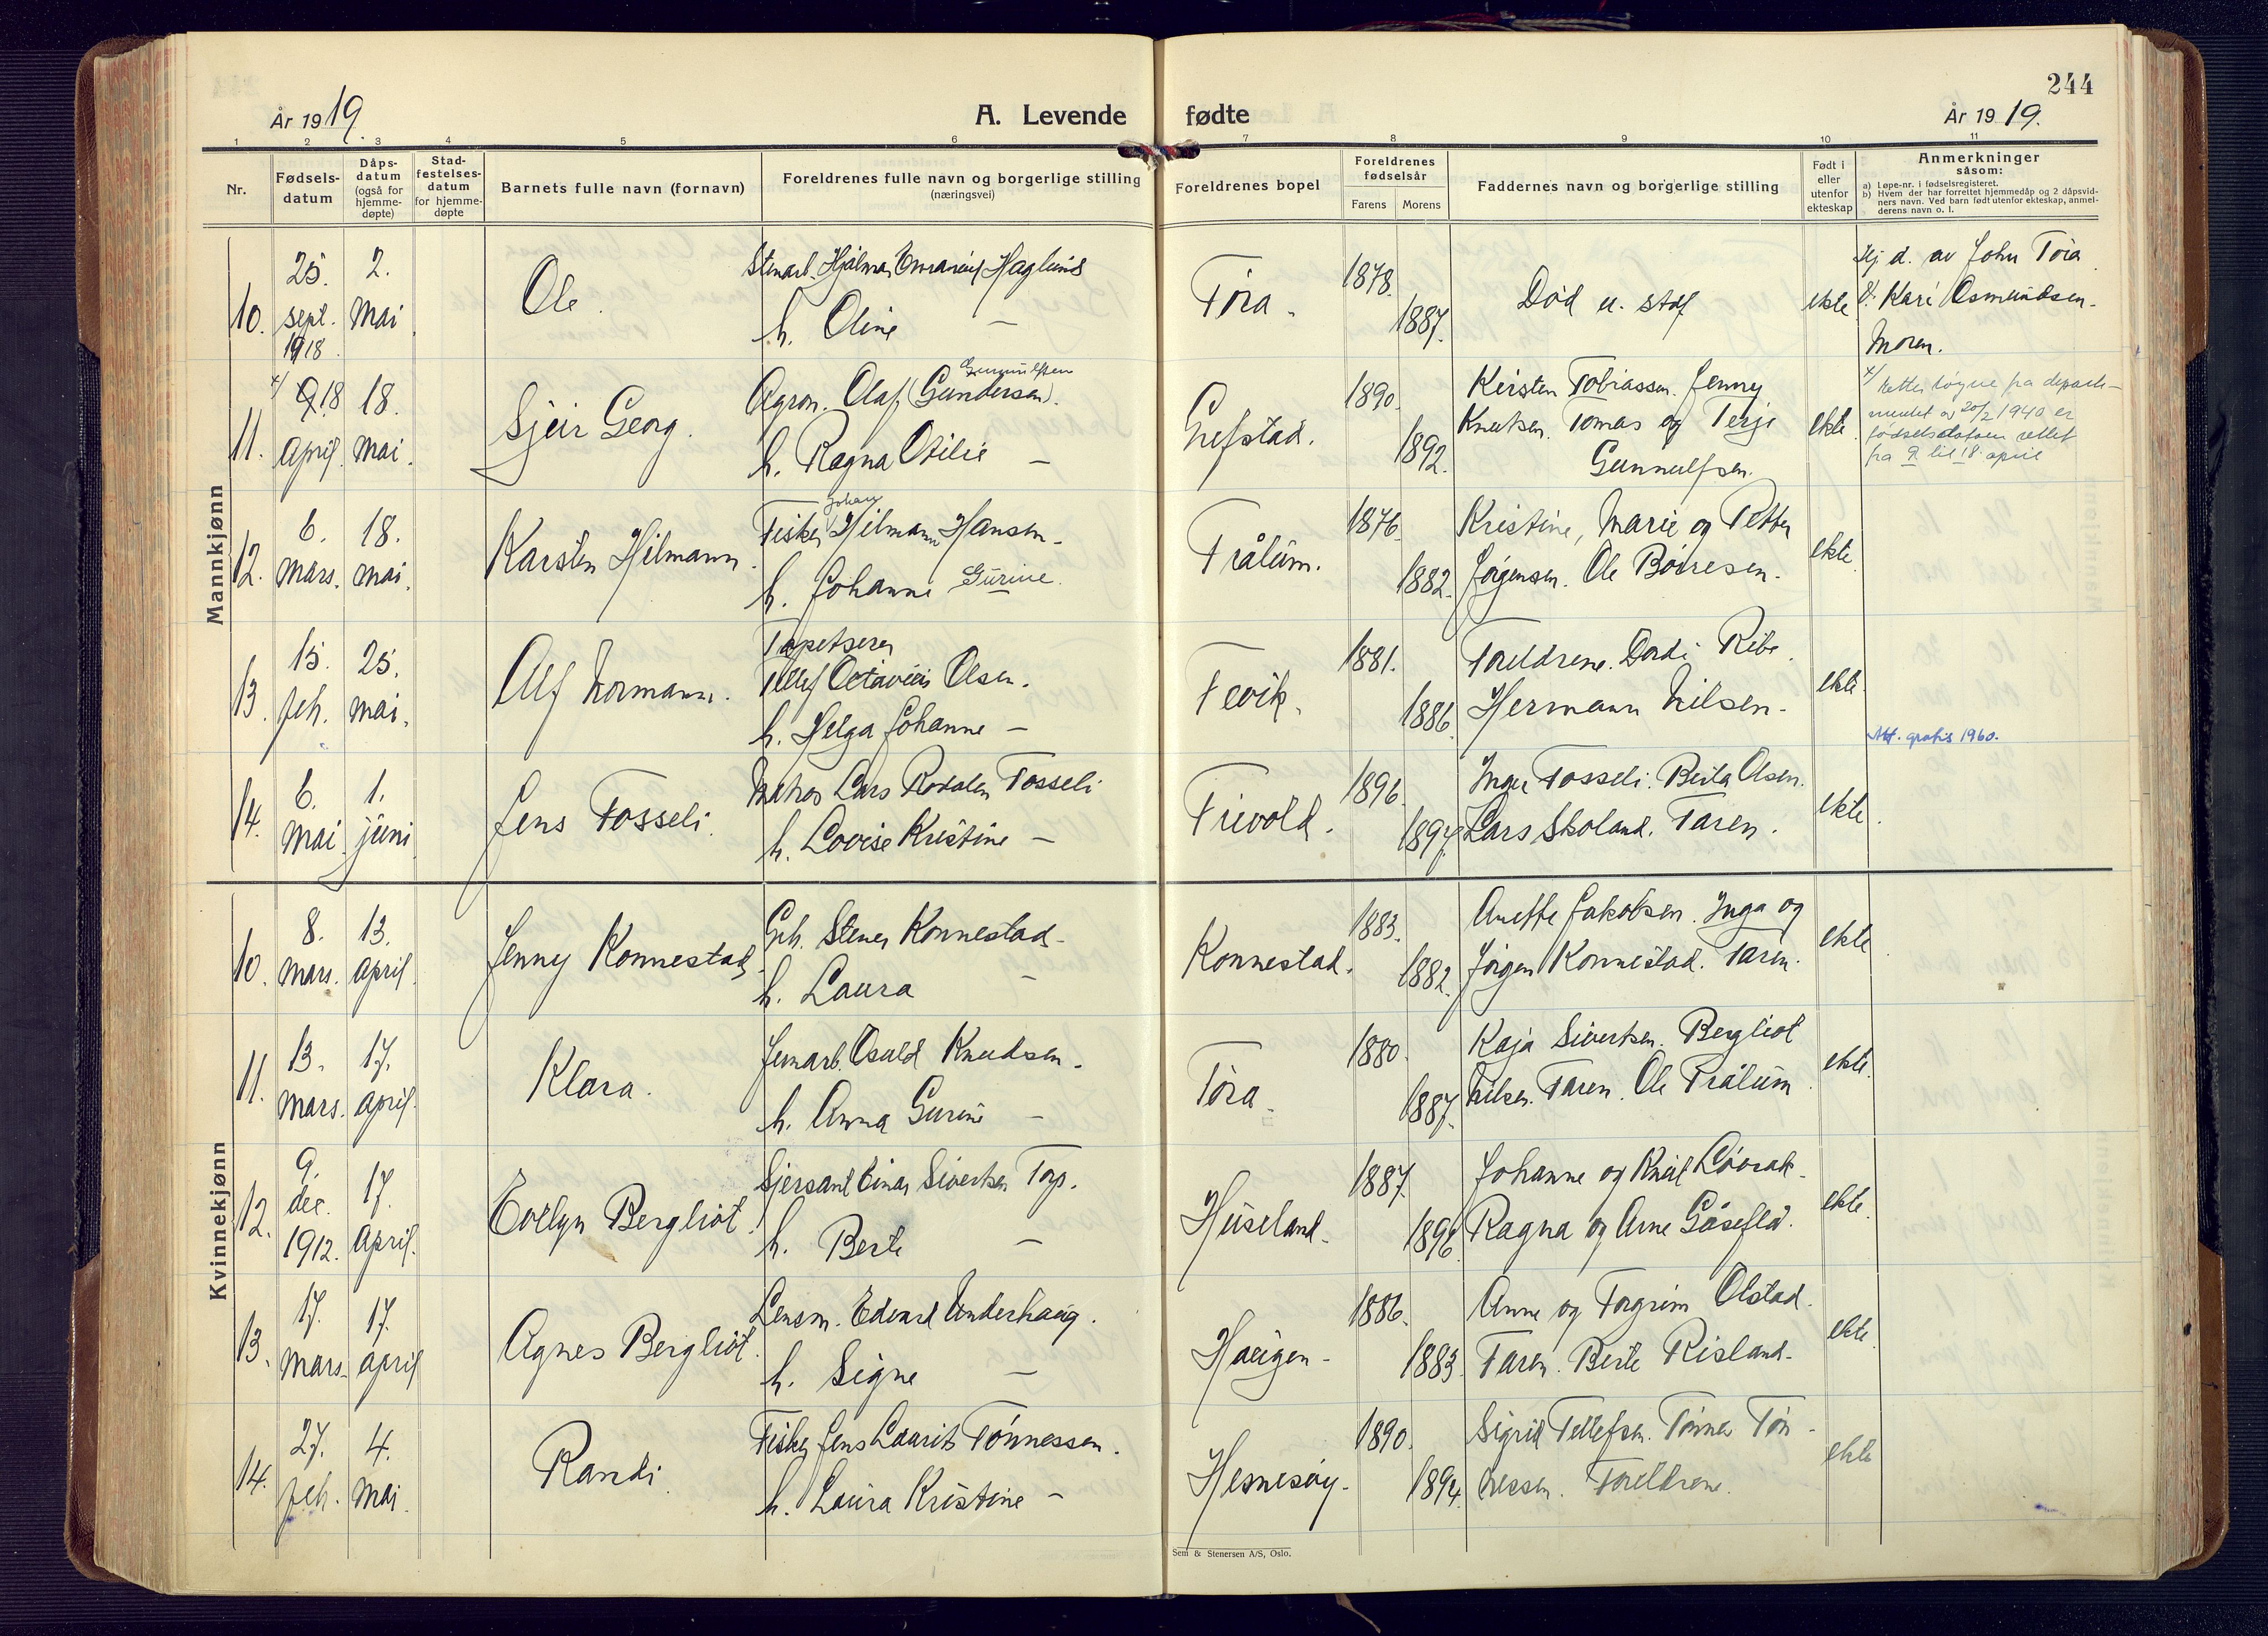 244
År 1919.
A. Levende fødte
År 1919.
1 2 3 4 5 6 7 8 9 10 11
Nr.
Fødselsdatum
Dåpsdatum (også for hjemmedøpte)
Stadfestelsesdatum for hjemmedøpte
Barnets fulle navn (fornavn)
Foreldrenes fulle navn og borgerlige stilling
(næringsvei)
Foreldrenes bopel
Foreldrenes fødselsår
Farens Morens
Faddernes navn og borgerlige stilling
Født i eller utenfor ekteskap
Anmerkninger
såsom:
a) Løpe-nr. i fødselsregisteret.
b) Hvem der har forrettet hjemmedåp og 2 dåpsvidners navn. Ved barn født utenfor ekteskap, anmelderens navn o. l.
Mannkjønn
10. 25. sept. 1918. 2. Mai
Ole.
Stenarb. Hjalmar Haglund
h. Oline —
Tøra. 1878. 1887.
Død u. staf
ekte
Hj. d. av John Tøra
Kari Osmundsen.
Moren.
11. x/ 9 18 April. 18. Mai.
Sjeir Georg.
Gunnulfsen
Agron. Olaf (Gundersen).
h. Ragna Otilie —
Grefstad. 1890. 1892.
Kirsten Tobiassen. Jenny
Knutsen. Tomas og Terje
Gunnulfsen.
ekte.
x/ Retter følgue fra departe-
mentet av 20/2 1940 er
fødselsdatoen rettet
fra 9 til 18. april
12. 6. Mars. 18. Mai.
Karsten Hilmann.
Johan
Fisker Hilmann Hansen.
h. Johanne Gurine.
Trålum. 1876. 1882.
Kristine, Marie og Petter
Jørgensen. Ole Børresen.
ekte.
13. 15. feb. 25. Mai.
Alf Normann.
Tapetserer
Tellef Octavius Olsen.
h. Helga Johanne —
Fevik. 1881. 1886.
Foreldrene. Dordi Ribe.
Hermann Nilsen.
ekte.
Att. gratis 1960.
14. 6. Mai 1. juni
Jens Fosseli.
Matros Lars Rodalen Fosseli
h. Lovise Kristine —
Frivold. 1896. 1897.
Inger Fosseli. Berta Olsen.
Lars Skoland. Faren.
ekte.
Kvinnekjønn
10. 8. Mars. 13. April.
Jenny Konnestad.
Grb. Stener Konnestad.
h. Laura —
Konnestad. 1883. 1882.
Anette Jakobsen. Inga og
Jørgen Konnestad. Faren.
ekte.
11. 13. Mars. 17. April.
Klara.
Jernarb. Osuld Knudsen.
h. Anna Gurine —
Tøra. 1880. 1887.
Kaja Sivertsen. Bergliot
Nilsen. Faren. Ole Trålum.
ekte.
12. 9. dec. 1912. 17. April.
Evelyn Bergliot.
Sjersant Einar Sivertsen Torp.
h. Berte —
Huseland. 1887. 1896.
Johanne og Knut Løvrak.
Ragna og Arne Gåseflå.
ekte.
13. 17. Mars. 17. April
Agnes Bergliot.
Lensm. Edvard Underhaug.
h. Signe —
Haugen. 1886. 1883.
Anne og Torgrim Olstad.
Faren. Berte Risland.
ekte.
14. 27. feb. 4. Mai.
Randi.
Fisker Jens Laurits Tønnessen.
h. Laura Kristine —
Hesnesøy. 1890. 1894.
Sigrid Tellefsen. Tønnes Tøn-
nessen. Foreldrene.
ekte
Sem & Stenersen A/S, Oslo.